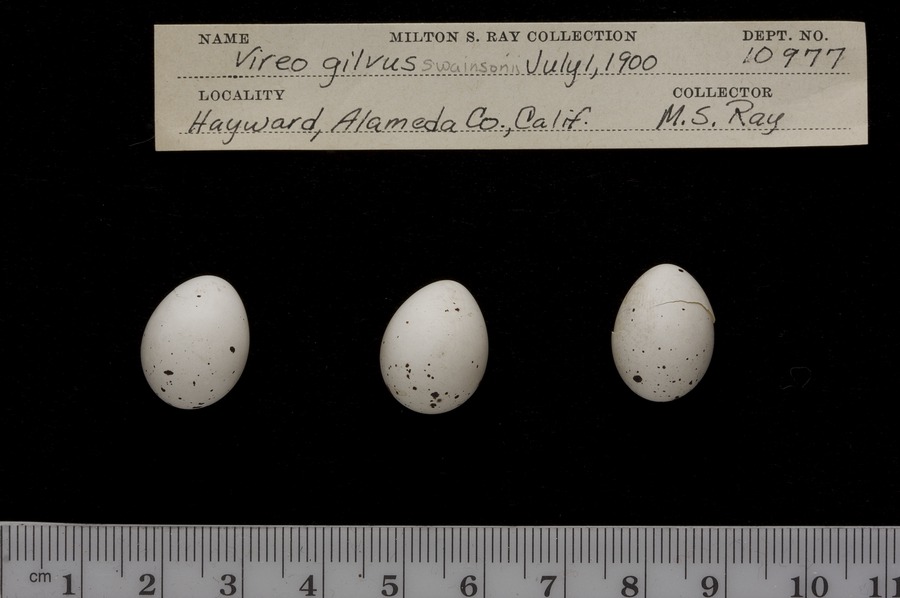 NAME MILTON S. RAY COLLECTION DEPT. NO.
Vireo gilvus swainsonii July 1, 1900 10977
LOCALITY COLLECTOR
Hayward, Alameda Co., Calif. M.S. Ray
cm 1 2 3 4 5 6 7 8 9 10 11